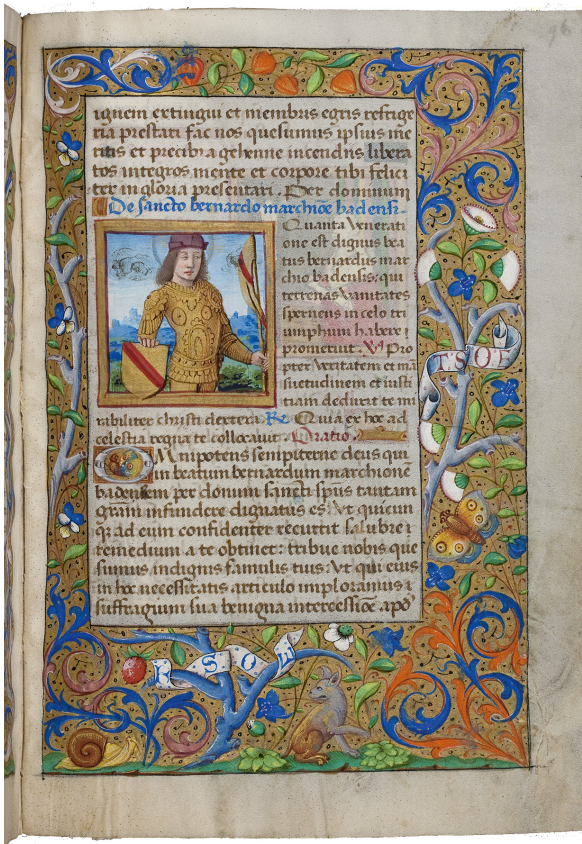 96
ignem extingui et membris egris refrige
ria prestari fac nos quesumus ipsius me
ritis et precibꝰ a gehenne incendiis libera
tos integros mente et corpore tibi felici
ter in gloria presentari. Per dominum
De sancto bernardo marchiõe badensi.
Quanta venerati
one est dignus bea
tus bernardus mar
chio badensis: qui
terrenas vanitates
spernens in celo tri
umphum habere
promeruit. V̷ Pro
pter veritatem et mã
suetudinem et iusti
tiam deduxit te mi
rabiliter christi dextera. R̷ Quia ex hoc ad
celestia regna te collocauit. Oratio.
Omnipotens sempiterne deus qui
in beatum bernardum marchionẽ
badensem per donum sancti spũs tantam
gratiam infundere dignatus es: Vt quicun
qꝫ ad eum confidenter recurrit salubre
remedium a te obtinet: tribue nobis que
sumus indignis famulis tuis: Vt qui eius
in hoc necessitatis articulo imploramus
suffragium sua benigna intercessiõe apd̾
I·SOT
R SOW